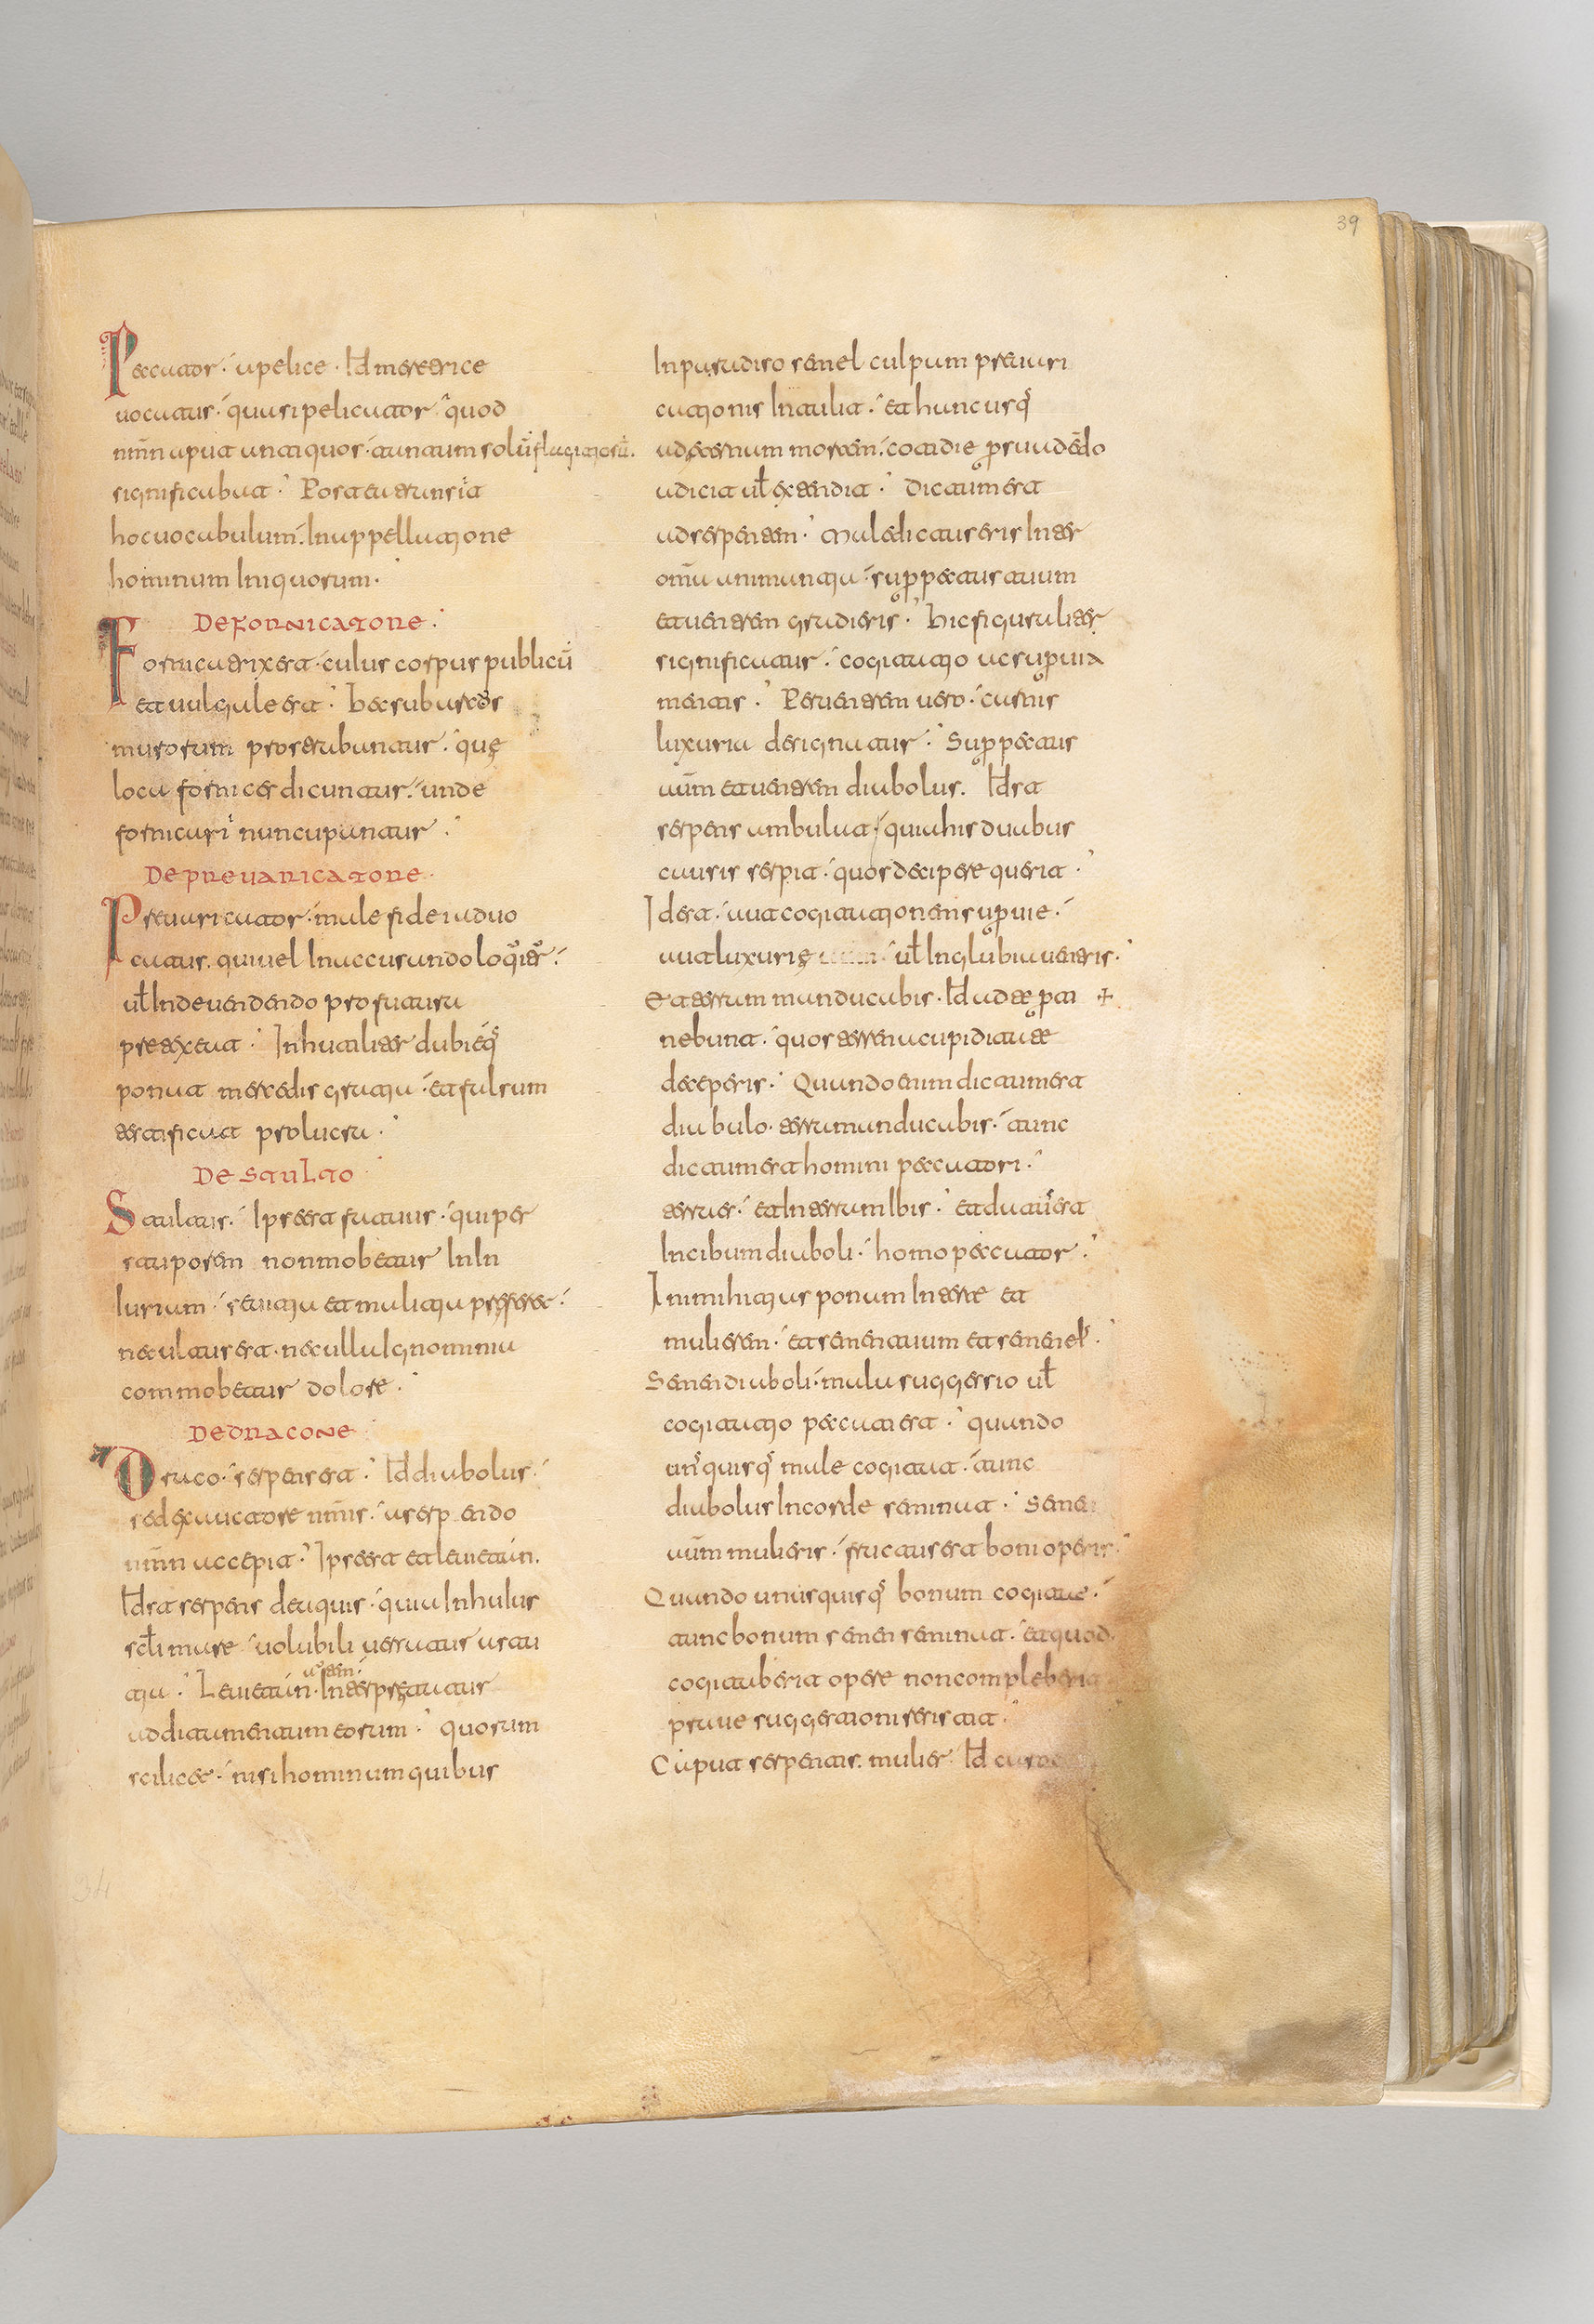 Peccator. a pelice. Id meretrice
vocatur. quasi pelicator. quod
nmn aput antiquos. tantum solū flagitiosū.
significabat. Postea transiit
hoc vocabulum. In appellatione
hominum Iniquorum.
De fornicatone.
Fornicatrix est. cuius corpus publicū
et vulgale est. hec sub
murorum prostrabantur. quę
loca fornices dicuntur. unde
fornicari nuncupantur.
De prevaricatone.
Prevaricator. male fidei advo
catur. qui vel In accusando loq̄it̄.
ul̄ Inde vendendo profutura
Inhutiliter dubieq̄
ponat mercedis gratia. et falsum
testificat pro lucra.
De stulto
Stultus. Ipse est fatuus. qui per
stuporem non mobetur In In
iuriam. sevitia et malitia
nec ultus est. nec ulla Ignominia
commobetur dolore.
De dracone
Draco. serpens est. Id diabolus.
sed nmis. a serpendo
nmn accepit. Ipse est et leviatan.
Id est serpens de aquis. quia In huius
scl̄i mare volubili versatur astu
tia. Leviatan. Interpretatur
additamentum eorum. quorum
scilicet. nisi hominum quibus
39
In paradiso semel culpam prevari
cationis Intulit. et hunc usq̄
ad eternum mortem. cotidie pravadēdo
adicit ul̄ extendit. Dictum est
ad serpentem. Maledictus eris Inter
omīa animantia. supra pectus tuum
et ventrem gradieris. hic figuraliter
significatur. cogitatio
mentis. Per ventrem vero. carnis
luxuria designatur. Super pectus
uūm et ventrem diabolus. Id est
serpens ambulat. quia his duabus
causis serpit. quos decipere querit.
Id est. aut cogitationem superuie.
aut luxurię ul̄ Inglubia ventris.
Et terram manducabis. Id ad te perti +
nebunt. quos terrena cupiditate
deceperis. Quando enim dictum est
diabulo. terra manducabis. tunc
dictum est homini peccatori.
terra es. et In terram Ibis. et datus est
In cibum diaboli. homo peccator.
Inimihitias ponam Inter te et
mulierem. et semen tuum et semen ei.
Semen diaboli. mala suggessio ul̄
cogitatio peccati est. quando
un̄quisq̄ male cogitat. tunc
diabolus In corde seminat. Semen
uūm mulieris. fructus est boni operis.
Quando unusquisq̄ bonum cogitat.
tunc bonum semen seminat. et quod
cogitaberit opere non compleberit
prave suggestioni resistit.
Caput serpentis. mulier. Id
34